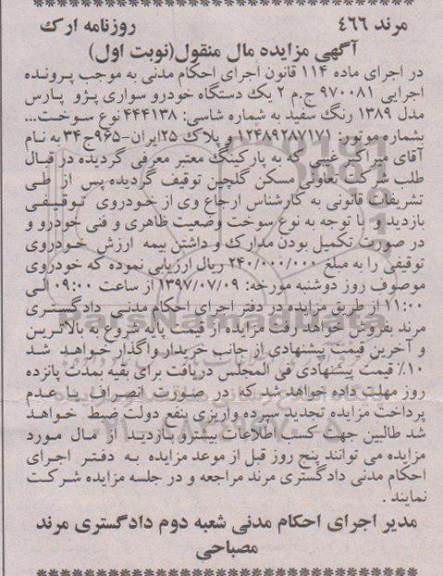 مرند ٤٦٦ روزنامه ارک
آگهی مزایده مال منقول(نوبت اول)
در اجرای ماده ۱۱۴ قانون اجرای احکام مدنی به موجب پرونده
اجرایی ۹۷۰۰۸۱ ج.م ۲ یک دستگاه خودرو سواری پژو پارس
مدل ۱۳۸۹ رنگ سفید به شماره شاسی: ۴۴۴۱۳۸ نوع سوخت...
بشماره موتور: ۱۲۴۸۹۲۸۷۱۷۱ و پلاک ۲۵ایران-۹۶۵ج۳۴ به نام
آقای میراکبر غیبی که به پارکینگ معتبر معرفی گردیده در قبال
طلب شرکت تعاونی مسکن گلچین توقیف گردیده پس از طی
تشریفات قانونی به کارشناس ارجاع وی از خودروی توقیفی
بازدید و با توجه به نوع سوخت وضعیت ظاهری و فنی خودرو و
در صورت تکمیل بودن مدارک و داشتن بیمه ارزش خودروی
توقیفی را به مبلغ ۲۴۰/۰۰۰/۰۰۰ ریال ارزیابی نموده که خودروی
موصوف روز دوشنبه مورخه: ۱۳۹۷/۰۷/۰۹ از ساعت ۰۹:۰۰ الی
۱۱:۰۰ از طریق مزایده در دفتر اجرای احکام مدنی دادگستری
مرند بفروش خواهد رفت مزایده از قیمت پایه شروع و به بالاترین
و آخرین قیمت پیشنهادی از جانب خریدار واگذار خواهد شد
۱۰٪ قیمت پیشنهادی فی المجلس دریافت برای بقیه بمدت پانزده
روز مهلت داده خواهد شد که در صورت انصراف یا عدم
پرداخت مزایده تجدید سپرده واریزی بنفع دولت ضبط خواهد
شد طالبین جهت کسب اطلاعات بیشتر و بازدید از مال مورد
مزایده می توانند پنج روز قبل از موعد مزایده به دفتر اجرای
احکام مدنی دادگستری مرند مراجعه و در جلسه مزایده شرکت
نمایند .
مدیر اجرای احکام مدنی شعبه دوم دادگستری مرند
مصباحی
ParsNamadData